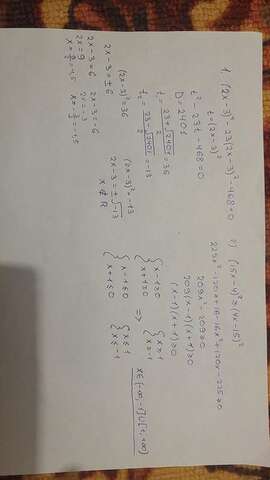 1. (2x-3)⁴-23(2x-3)²-468=0
t=(2x-3)²
t²-23t-468=0
D=2401
t₁=(23+√2401)/2=36
t₂=(23-√2401)/2=-13
(2x-3)²=36
2x-3=±6
2x-3=6
2x=9
x=9/2=4,5
2x-3=-6
2x=-3
x=-3/2=-1,5
(2x-3)²=-13
2x-3=±√-13
x∉R
(15x-4)²≥(4x-15)²
225x²-120x+16-16x²+120x-225≥0
209x²-209≥0
209(x-1)(x+1)≥0
(x-1)(x+1)≥0
{x-1≥0
x+1≥0
⇒
{x≥1
x≥-1
{x-1≤0
x+1≤0
{x≤1
x≤-1
x∈(-∞,-1]∪[1,+∞)